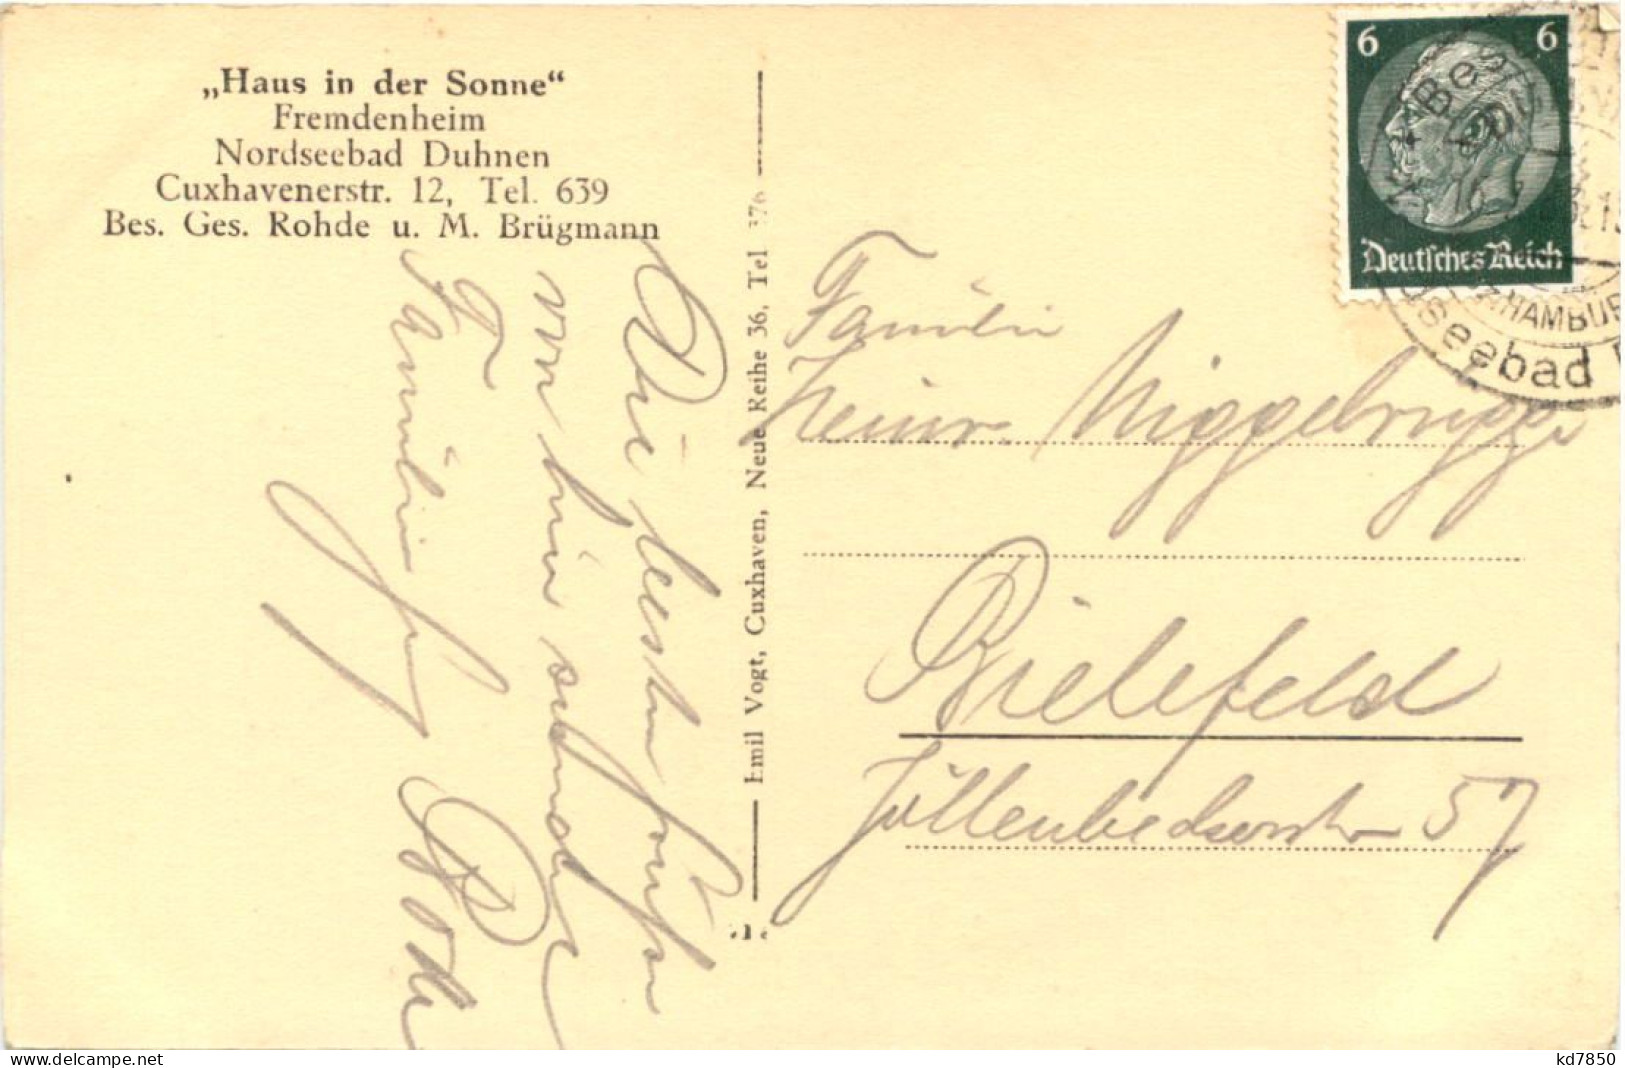 „Haus in der Sonne“
Fremdenheim
Nordseebad Duhnen
Cuxhavenerstr. 12, Tel. 639
Bes. Ges. Rohde u. M. Brügmann
Die besten Grüße
von hier sendet
Familie
Emil Vogt, Cuxhaven, Neue Reihe 36, Tel 376
6 6
Deutsches Reich
HAMBUR
Seebad
Familie
Heinr. Niggebrügge
Bielefeld
Jöllenbeckerstr 57
www.delcampe.net
kd7850